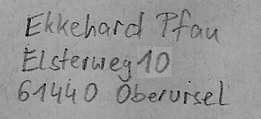 Ekkehard Pfau
Elsterweg 10
61440 Oberursel